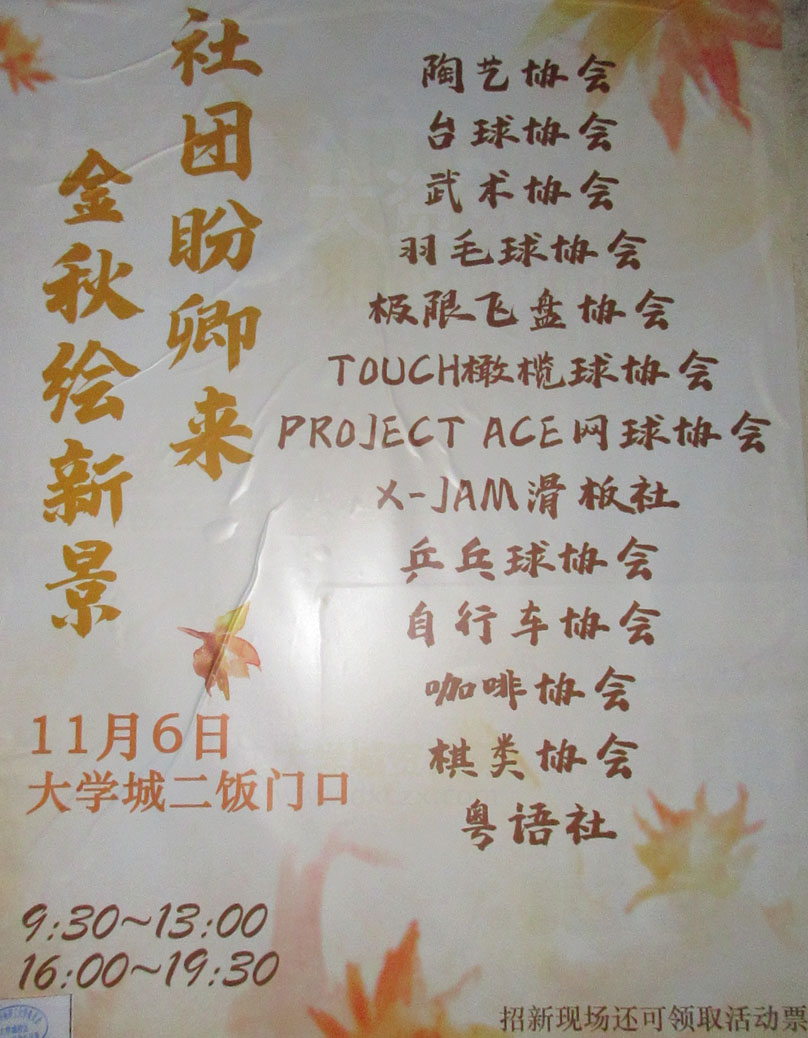 社团盼卿来
金秋绘新景
陶艺协会
台球协会
武术协会
羽毛球协会
极限飞盘协会
TOUCH橄榄球协会
PROJECT ACE网球协会
X-JAM滑板社
乒乓球协会
自行车协会
咖啡协会
棋类协会
粤语社
11月6日
大学城二饭门口
9:30~13:00
16:00~19:30
招新现场还可领取活动票